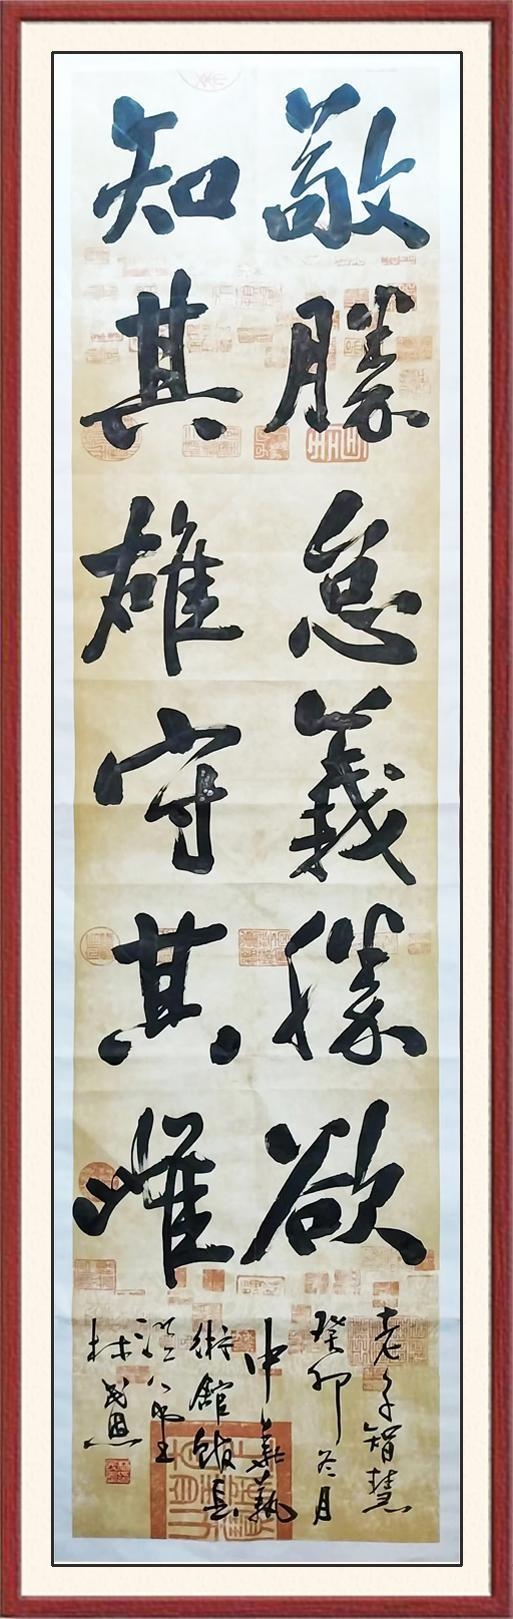 敬勝怠義勝欲
知其雄守其雌
老子智慧
癸卯冬月
中華藝
術館館長
林